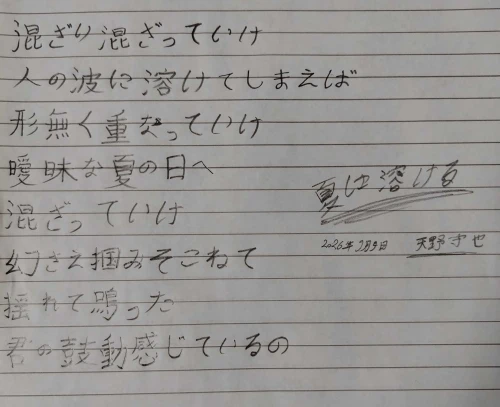 混ざり混ざっていけ
人の波に溶けてしまえば
形無く重なっていけ
曖昧な夏の日へ
混ざっていけ
幻さえ掴みそこねて
揺れて鳴った
君の鼓動感じているの
夏は溶ける
2026年1月9日 天野守也